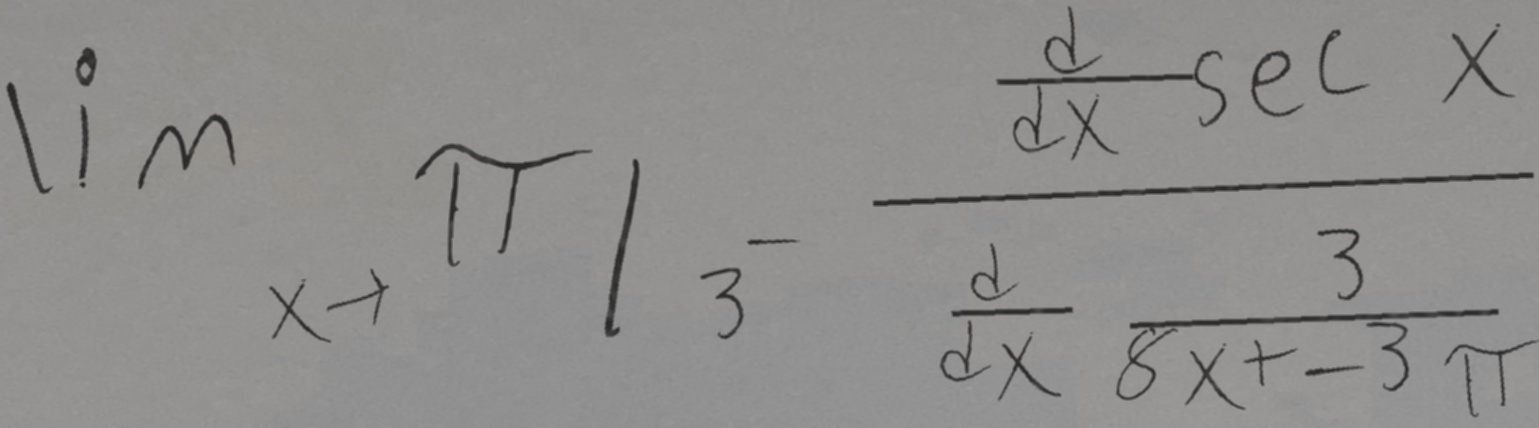 \lim_{x \to \pi/3^-} \frac{\frac{d}{dx} \sec x}{\frac{d}{dx} \frac{3}{8x + -3\pi}}